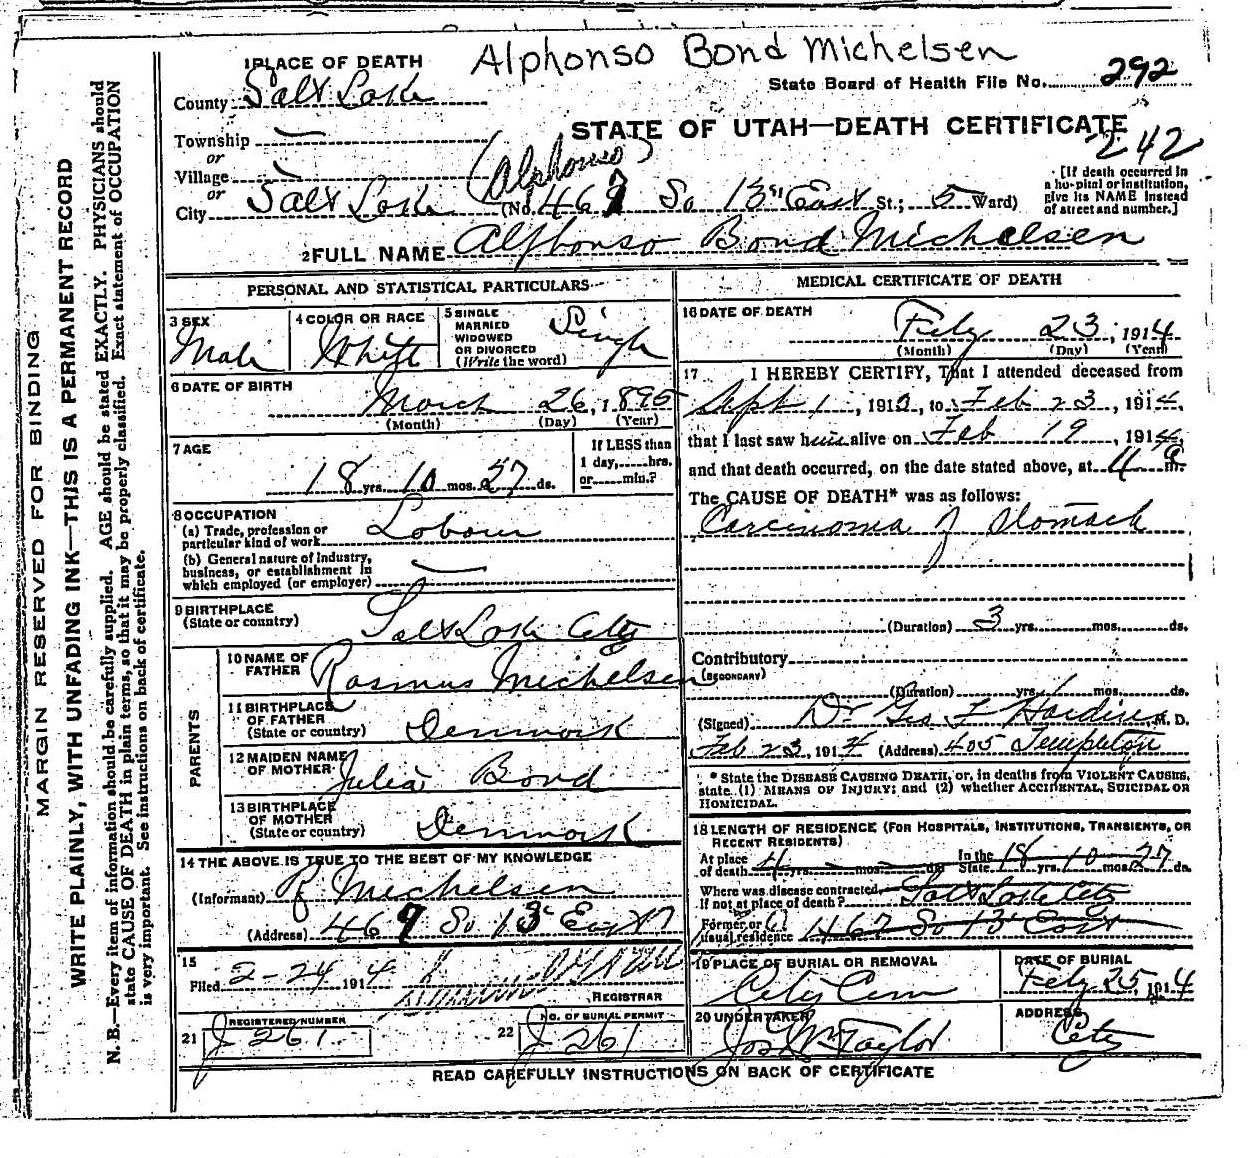 Alphonso Bond Michelsen
1 PLACE OF DEATH
State Board of Health File No. 292
County Salt Lake
STATE OF UTAH—DEATH CERTIFICATE
242
Township —
or
Village
or
(Alphonso)
City Salt Lake (No. 467 So 13th East St.; 5 Ward)
[If death occurred in
a hospital or institution,
give its NAME instead
of street and number.]
2 FULL NAME Alphonso Bond Michelsen
PERSONAL AND STATISTICAL PARTICULARS
3 SEX
Male
4 COLOR OR RACE
White
5 SINGLE
MARRIED
WIDOWED
OR DIVORCED
(Write the word)
Single
6 DATE OF BIRTH
March 26, 1895
(Month) (Day) (Year)
7 AGE
18 yrs. 10 mos. 27 ds.
If LESS than
1 day,......hrs.
or......min.?
8 OCCUPATION
(a) Trade, profession or
particular kind of work Labour
(b) General nature of industry,
business, or establishment in
which employed (or employer) —
9 BIRTHPLACE
(State or country)
Salt Lake City
PARENTS
10 NAME OF
FATHER
Rasmus Michelsen
11 BIRTHPLACE
OF FATHER
(State or country)
Denmark
12 MAIDEN NAME
OF MOTHER
Julia Bond
13 BIRTHPLACE
OF MOTHER
(State or country)
Denmark
14 THE ABOVE IS TRUE TO THE BEST OF MY KNOWLEDGE
(Informant) R Michelsen
(Address) 469 So 13 East
15
Filed 2-24 1914
REGISTRAR
21 REGISTERED NUMBER
J 261
22 NO. OF BURIAL PERMIT
J 261
MEDICAL CERTIFICATE OF DEATH
16 DATE OF DEATH
Feby 23, 1914
(Month) (Day) (Year)
17 I HEREBY CERTIFY, That I attended deceased from
Sept 1, 1913, to Feb 23, 1914,
that I last saw him alive on Feb 19, 1914,
and that death occurred, on the date stated above, at 4 a m.
The CAUSE OF DEATH* was as follows:
Carcinoma of Stomach
(Duration) 3 yrs. mos. ds.
Contributory
(SECONDARY)
(Duration) yrs. mos. ds.
(Signed) Dr Geo F Harding M. D.
Feb 23, 1914 (Address) 405 Templeton
* State the DISEASE CAUSING DEATH, or, in deaths from VIOLENT CAUSES,
state (1) MEANS OF INJURY; and (2) whether ACCIDENTAL, SUICIDAL OR
HOMICIDAL.
18 LENGTH OF RESIDENCE (FOR HOSPITALS, INSTITUTIONS, TRANSIENTS, OR
RECENT RESIDENTS)
At place
of death 4 yrs. mos. ds. In the
State 18 yrs. 10 mos. 27 ds.
Where was disease contracted,
If not at place of death? Salt Lake City
Former or
usual residence 467 So 13 East
19 PLACE OF BURIAL OR REMOVAL
City Cem
DATE OF BURIAL
Feby 25, 1914
20 UNDERTAKER
Jos Wm Taylor
ADDRESS
City
READ CAREFULLY INSTRUCTIONS ON BACK OF CERTIFICATE
MARGIN RESERVED FOR BINDING
WRITE PLAINLY, WITH UNFADING INK—THIS IS A PERMANENT RECORD
N. B.—Every item of information should be carefully supplied. AGE should be stated EXACTLY. PHYSICIANS should
state CAUSE OF DEATH in plain terms, so that it may be properly classified. Exact statement of OCCUPATION
is very important. See instructions on back of certificate.